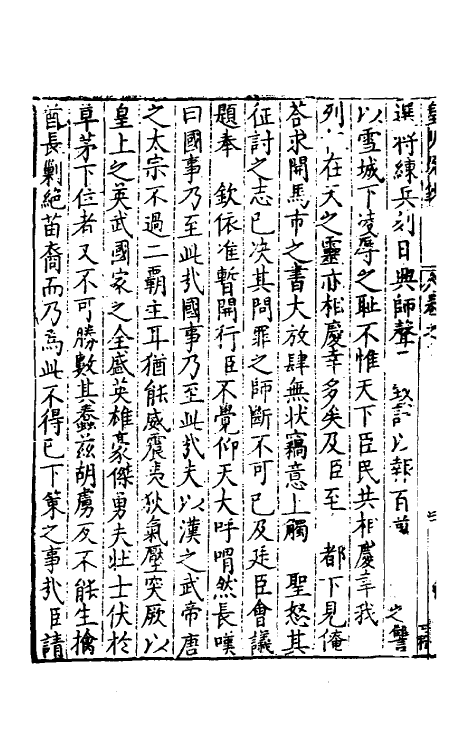 選将練兵刻日興師聲 致討以報百 之讐
以雪城下凌辱之恥不惟天下臣民共相慶幸我
列 在天之靈亦相慶幸多矣及臣至 都下見俺
荅求開馬市之書大放肆無状竊意上觸 聖怒其
征討之志已决其問罪之師斷不可已及廷臣會議
題奉 欽依准暫開行臣不覺仰天大呼喟然長嘆
曰國事乃至此㢤國事乃至此㢤夫以漢之武帝唐
之太宗不過二霸主耳猶能威震夷狄氣壓突厥以
皇上之英武國家之全盛英雄豪傑勇夫壮士伏於
草茅下位者又不可勝數其蠢茲胡虜反不能生擒
酋長剿絕苗裔而乃爲此不得已下策之事㢤臣請